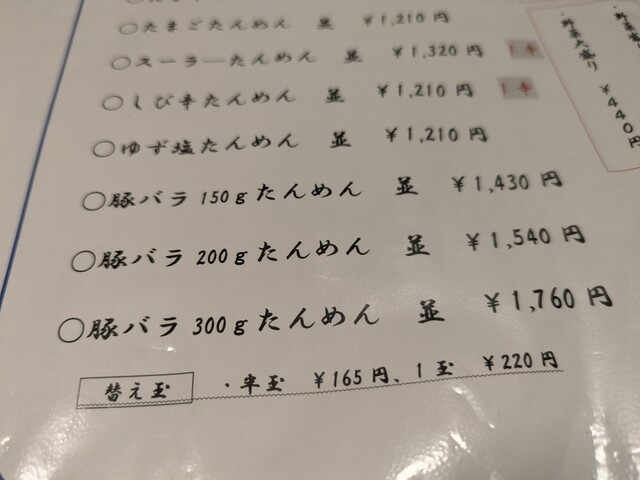 ○たまごたんめん 並 ¥1,210円
○スーラ―たんめん 並 ¥1,320円 1辛
○しび辛たんめん 並 ¥1,210円 1辛
○ゆず塩たんめん 並 ¥1,210円
○豚バラ 150gたんめん 並 ¥1,430円
○豚バラ 200gたんめん 並 ¥1,540円
○豚バラ 300gたんめん 並 ¥1,760円
替え玉 ・半玉 ¥165円、1玉 ¥220円
野菜大盛り ¥440円